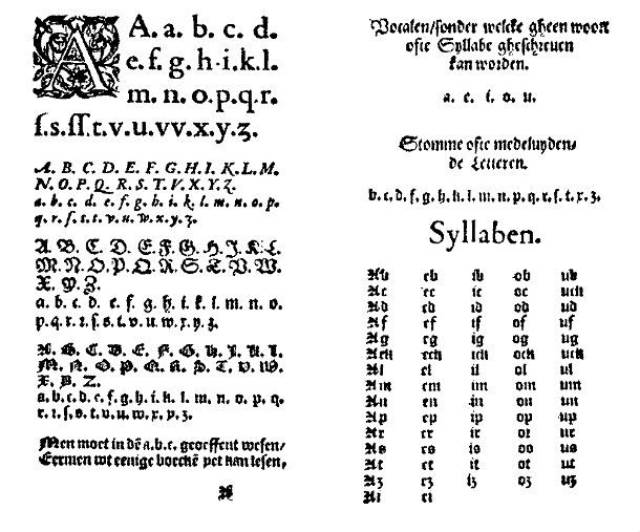 A A. a. b. c. d.
e. f. g. h. i. k. l.
m. n. o. p. q. r.
ſ. s. ſſ. t. v. u. vv. x. y. z.
A. B. C. D. E. F. G. H. I. K. L. M.
N. O. P. Q. R. S. T. V. X. Y. Z.
a. b. c. d. e. f. g. h. i. k. l. m. n. o. p.
q. r. ſ. t. t. v. u. w. x. y. z.
A. B. C. D. E. F. G. H. J. K. L.
M. N. O. P. Q. R. S. T. V. W.
X. Y. Z.
a. b. c. d. e. f. g. h. i. k. l. m. n. o.
p. q. r. r. ſ. s. t. v. u. w. x. y. z.
A. B. C. D. E. F. G. H. I. K. L.
M. N. O. P. Q. R. S. T. V. W.
X. Y. Z.
a. b. c. d. e. f. g. h. i. k. l. m. n. o. p. q.
r. r. ſ. s. t. v. u. w. x. y. z.
Men moet in dē a. b. c. geoeffent wesen/
Eermen tot eenige boeckē yet kan lesen,
A
Vocalen/sonder welcke gheen woort
ofte Syllabe gheschreuen
kan worden.
a. e. i. o. u.
Stomme ofte medeluyden/
de Letteren.
b. c. d. f. g. h. k. l. m. n. p. q. r. ſ. t. x. z.
Syllaben.
Ab eb ib ob ub
Ac ec ic oc uck
Ad ed id od ud
Af ef if of uf
Ag eg ig og ug
Ack eck ick ock uck
Al el il ol ul
Am em im om um
An en in on un
Ap ep ip op up
Ar er ir or ur
As es is os us
At et it ot ut
Az ez iz oz uz
Ai ei